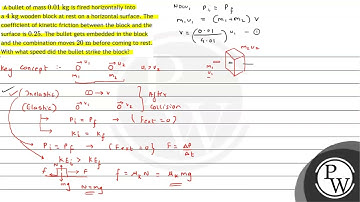 A bullet of mass 0.01 kg is fired horizontally into
a 4 kg wooden block at rest on a horizontal surface. The
coefficient of kinetic friction between the block and the
surface is 0.25. The bullet gets embedded in the block
and the combination moves 20 m before coming to rest.
With what speed did the bullet strike the block?
Now, Pi = Pf
m₁v₁ = (m₁+m₂) v
v = (0.01/4.01) v₁ - ①
m₂ v₂
m₁
Key concept :- →v₁ →v₂ v₁>v₂
m₁ m₂
✓ (Inelastic) → v } After
(Elastic) →v₁ →v₂ } Collision
→ Pi = Pf → (Fext = 0)
→ Ki = Kf
→ Pi = Pf → (Fext = 0) F = ΔP/Δt
KEi > KEf
N
f F f = μₖN = μₖmg
mg N = mg
PW
PW